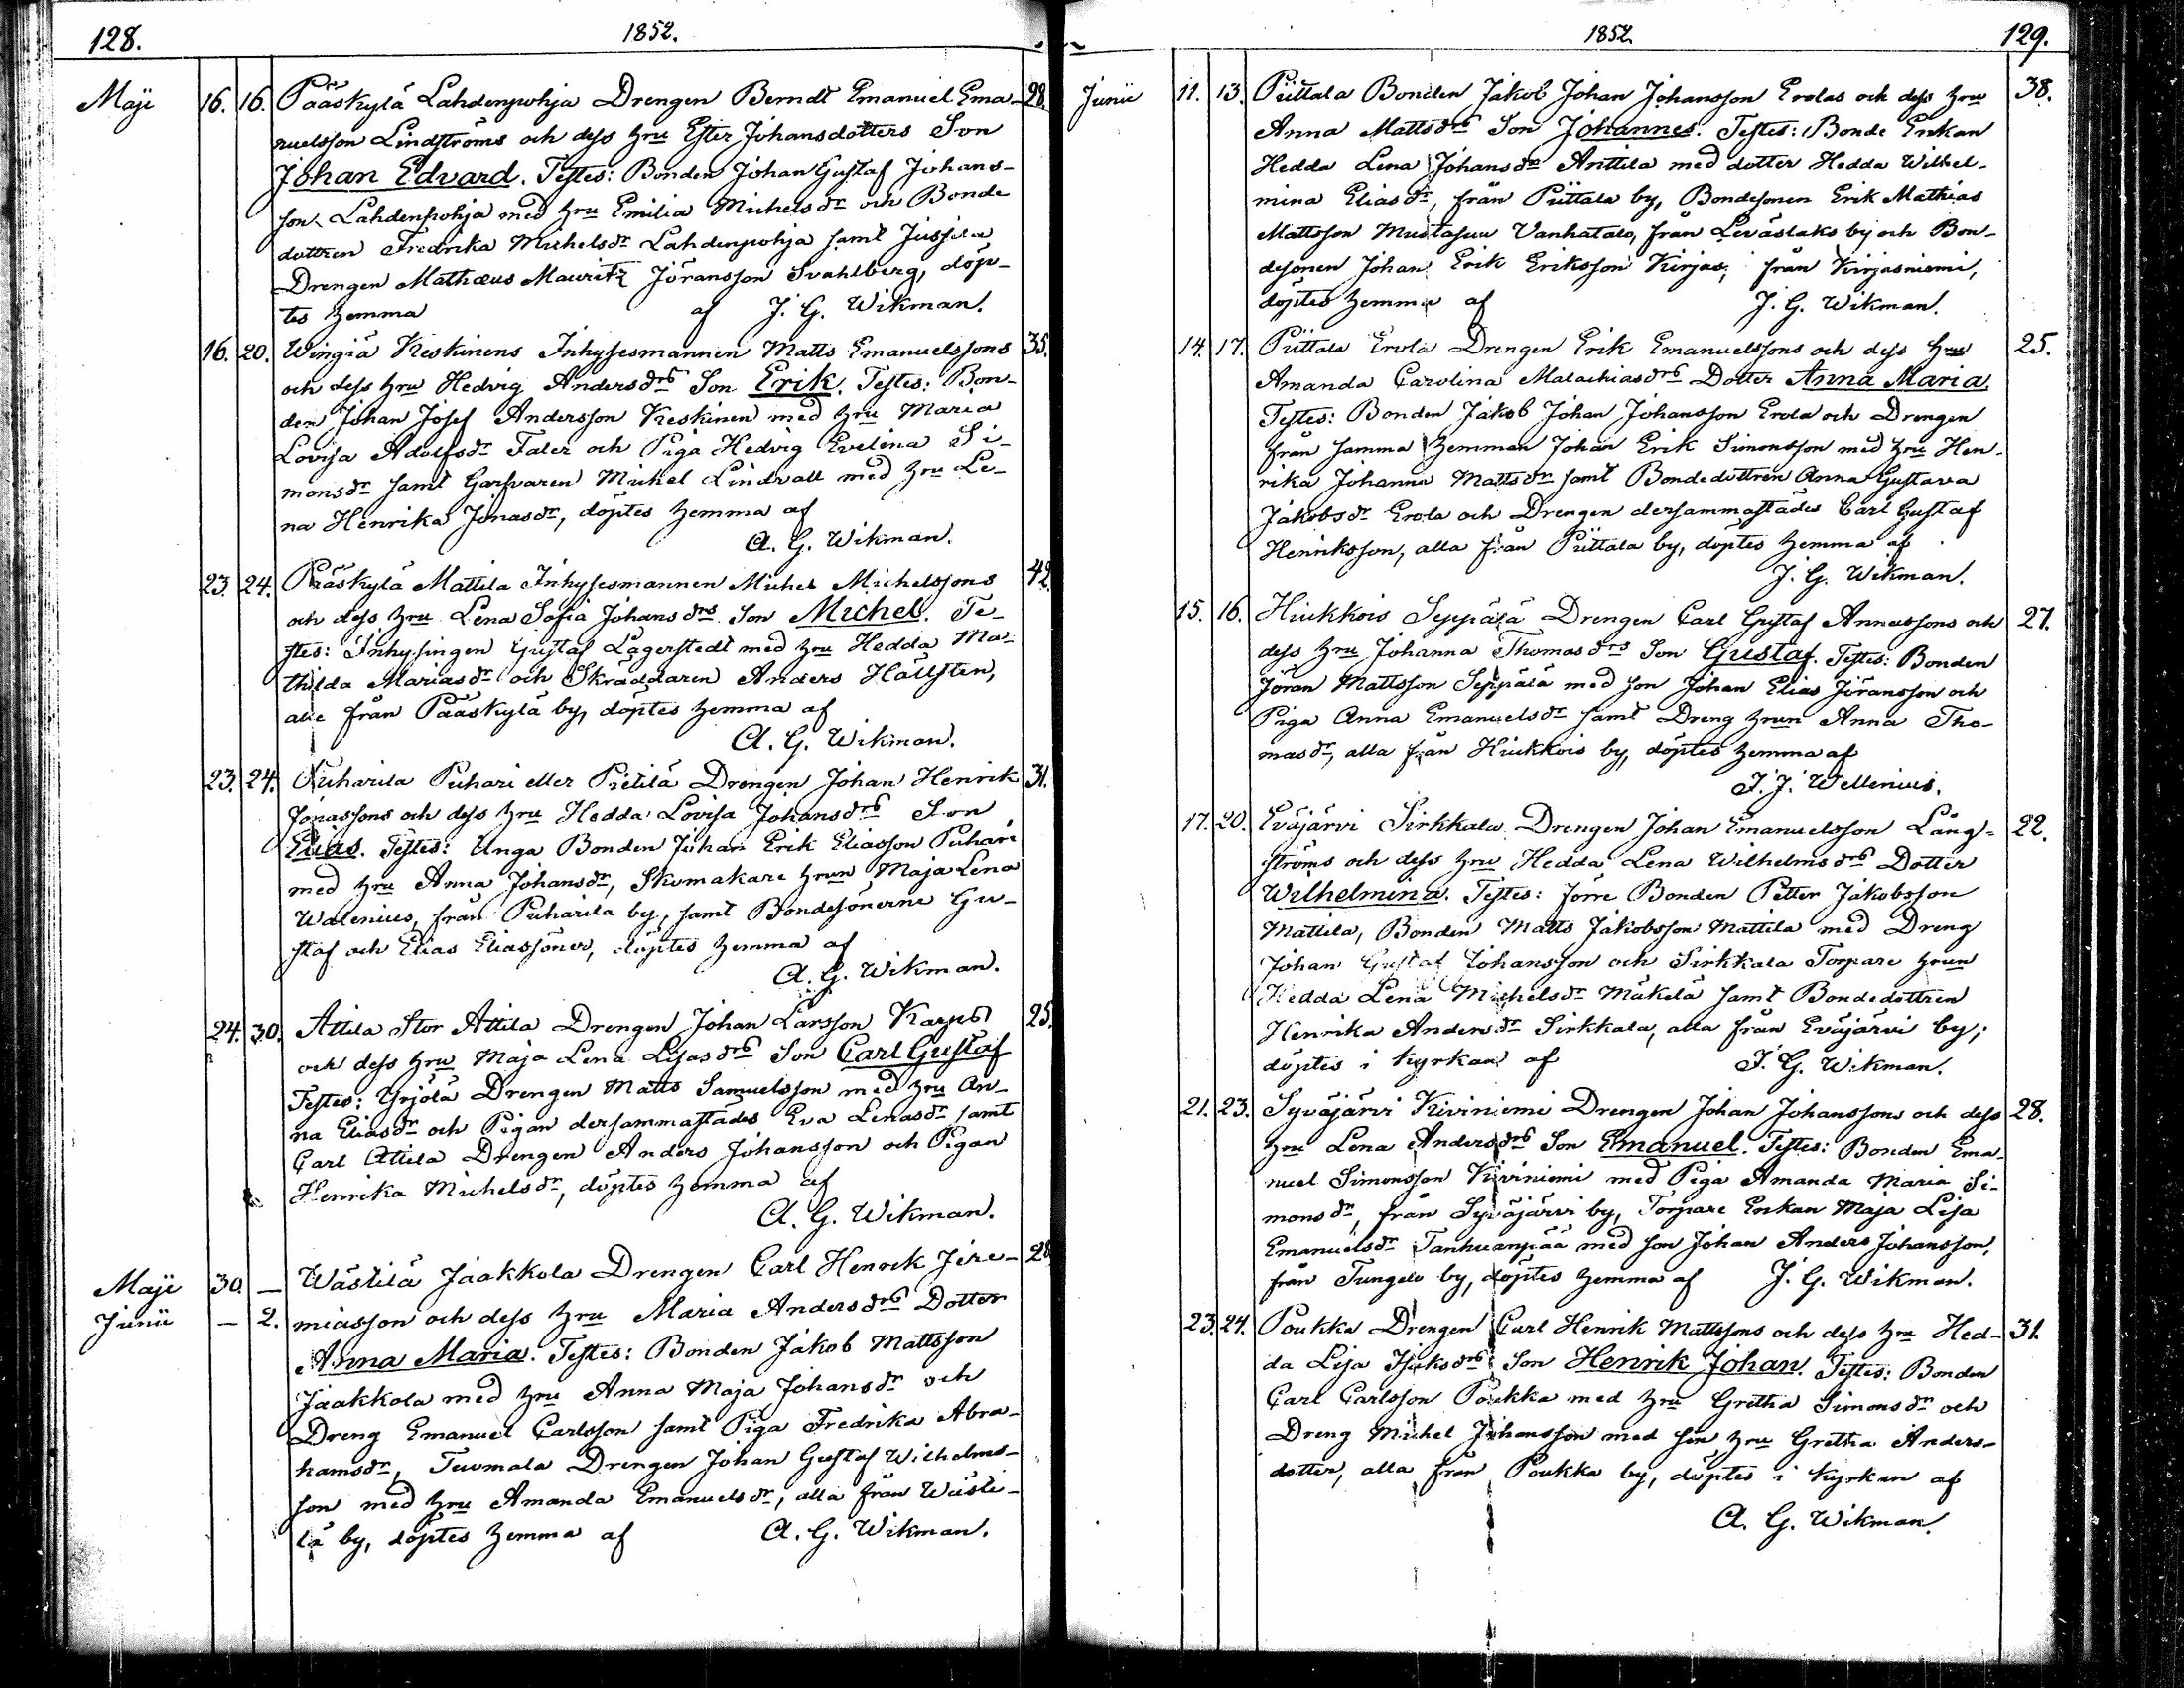 128. 1852.
Maji 16. 16. Pääskylä Lahdenpohja Drengen Berndt Emanuel Ema- 28.
nuelsson Lindströms och dess hru Ester Johansdotters Son
Johan Edvard. Testes: Bonden Johan Gustaf Johans-
son Lahdenpohja med hru Emilia Michelsdr och Bonde
dottren Fredrika Michelsdr Lahdenpohja samt Jussila
Drengen Mathæus Mauritz Jöransson Svahlberg, döp-
tes hemma af J. G. Wikman.
16. 20. Wingiä Keskinens Inhysesmannen Matts Emanuelssons 35.
och dess hru Hedvig Andersdrs Son Erik. Testes: Bon-
den Johan Josef Andersson Keskinen med hru Maria
Lovisa Adolfsdr Faler och Piga Hedvig Evelina Si-
monsdr samt Garfvaren Michel Lindvall med hru Le-
na Henrika Jonasdr, döptes hemma af
A. G. Wikman.
23. 24. Pääskylä Mattila Inhysesmannen Michel Michelssons 42
och dess hru Lena Sofia Johansdrs Son Michel. Te-
stes: Inhysingen Gustaf Lagerstedt med hru Hedda Ma-
thilda Mariasdr och Skräddaren Anders Hällsten,
alle från Pääskylä by, döptes hemma af
A. G. Wikman.
23. 24. Puharila Puhari eller Pietilä Drengen Johan Henrik 31.
Jonassons och dess hru Hedda Lovisa Johansdrs Son
Elias. Testes: Unga Bonden Johan Erik Eliasson Puhari
med hru Anna Johansdr, Skomakare hrun Maja Lena
Walenius, från Puharila by, samt Bondesönerne Gu-
staf och Elias Eliassöner, döptes hemma af
A. G. Wikman.
24. 30. Attila Stor Attila Drengen Johan Larsson Karps 25.
och dess hru Maja Lena Lisasdrs Son Carl Gustaf
Testes: Yrjölä Drengen Matts Samuelsson med hru An-
na Eliasdr och Pigan dersammastädes Eva Lenasdr samt
Carl Attila Drengen Anders Johansson och Pigan
Henrika Michelsdr, döptes hemma af
A. G. Wikman.
Maji 30. — Wästilä Jaakkola Drengen Carl Henrik Jere- 28
Junii — 2. miasson och dess hru Maria Andersdrs Dotter
Anna Maria. Testes: Bonden Jakob Mattsson
Jaakkola med hru Anna Maja Johansdr och
Dreng Emanuel Carlsson samt Piga Fredrika Abra-
hamsdr, Tuomala Drengen Johan Gustaf Wilhelms-
son med hru Amanda Emanuelsdr, alla från Wästi-
lä by, döptes hemma af A. G. Wikman.
1852. 129.
Junii 11. 13. Piittala Bonden Jakob Johan Johansson Erolas och dess hru 38.
Anna Mattsdrs Son Johannes. Testes: Bonde Enkan
Hedda Lena Johansdr Anttila med dotter Hedda Wilhel-
mina Eliasdr, från Piittala by, Bondesonen Erik Mathias
Mattsson Mustasuu Vanhatalo, från Leväslaks by och Bon-
desonen Johan Erik Eriksson Kirjas, från Kirjasniemi,
döptes hemma af J. G. Wikman.
14. 17. Piittala Erola Drengen Erik Emanuelssons och dess hru 25.
Amanda Carolina Malachiasdrs Dotter Anna Maria.
Testes: Bonden Jakob Johan Johansson Erola och Drengen
från samma hemman Johan Erik Simonsson med hru Hen-
rika Johanna Mattsdr samt Bondedottren Anna Gustava
Jakobsdr Erola och Drengen dersammastädes Carl Gustaf
Henriksson, alla från Piittala by, döptes hemma af
J. G. Wikman.
15. 16. Hiukkois Seppälä Drengen Carl Gustaf Annassons och 27.
dess hru Johanna Thomasdrs Son Gustaf. Testes: Bonden
Jöran Mattsson Seppälä med son Johan Elias Jöransson och
Piga Anna Emanuelsdr samt Dreng hrun Anna Tho-
masdr, alla från Hiukkois by, döptes hemma af
J. J. Wellenius.
17. 20. Eväjärvi Sirkkala Drengen Johan Emanuelsson Lång- 22.
ströms och dess hru Hedda Lena Wilhelmsdrs Dotter
Wilhelmina. Testes: förre Bonden Petter Jakobsson
Mattila, Bonden Matts Jakobsson Mattila med Dreng
Johan Gustaf Johansson och Sirkkala Torpare hrun
Hedda Lena Michelsdr Mäkelä samt Bondedottren
Henrika Andersdr Sirkkala, alla från Eväjärvi by;
döptes i Kyrkan af J. G. Wikman.
21. 23. Syväjärvi Kiviniemi Drengen Johan Johanssons och dess 28.
hru Lena Andersdrs Son Emanuel. Testes: Bonden Ema-
nuel Simonsson Kiviniemi med Piga Amanda Maria Si-
monsdr, från Syväjärvi by, Torpare Enkan Maja Lisa
Emanuelsdr Tanhuanpää med son Johan Anders Johansson,
från Tungelo by, döptes hemma af J. G. Wikman.
23. 24. Poukka Drengen Carl Henrik Mattssons och dess hru Hed- 31.
da Lisa Isaksdrs Son Henrik Johan. Testes: Bonden
Carl Carlsson Poukka med hru Gretha Simonsdr och
Dreng Michel Johansson med sin hru Gretha Anders-
dotter, alla från Poukka by, döptes i Kyrkan af
A. G. Wikman.